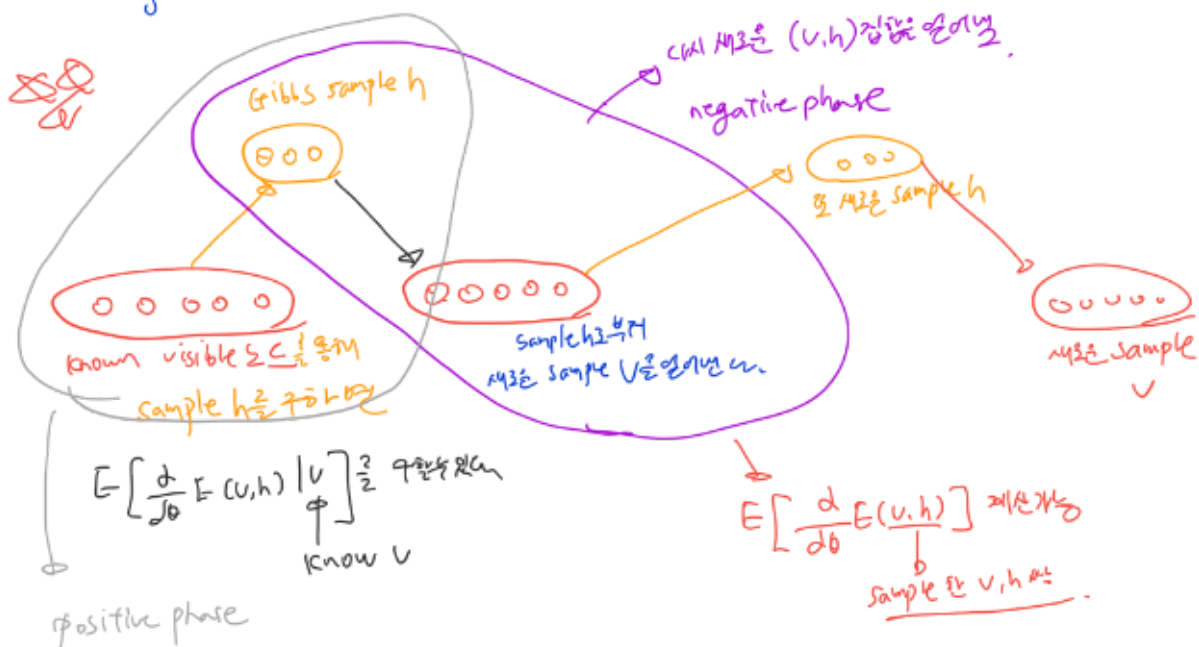 다시 새로운 (v,h) 집합을 얻어냄.
negative phase
Gibbs sample h
또 새로운 sample h
known visible 노드를 통해
sample h를 구하면
sample h로부터
새로운 sample v를 얻어낸다.
새로운 sample
v
E[d/dθ E(v,h) | v]를 구할 수 있다
know v
E[d/dθ E(v,h)] 계산가능
sample 한 v,h 쌍.
positive phase